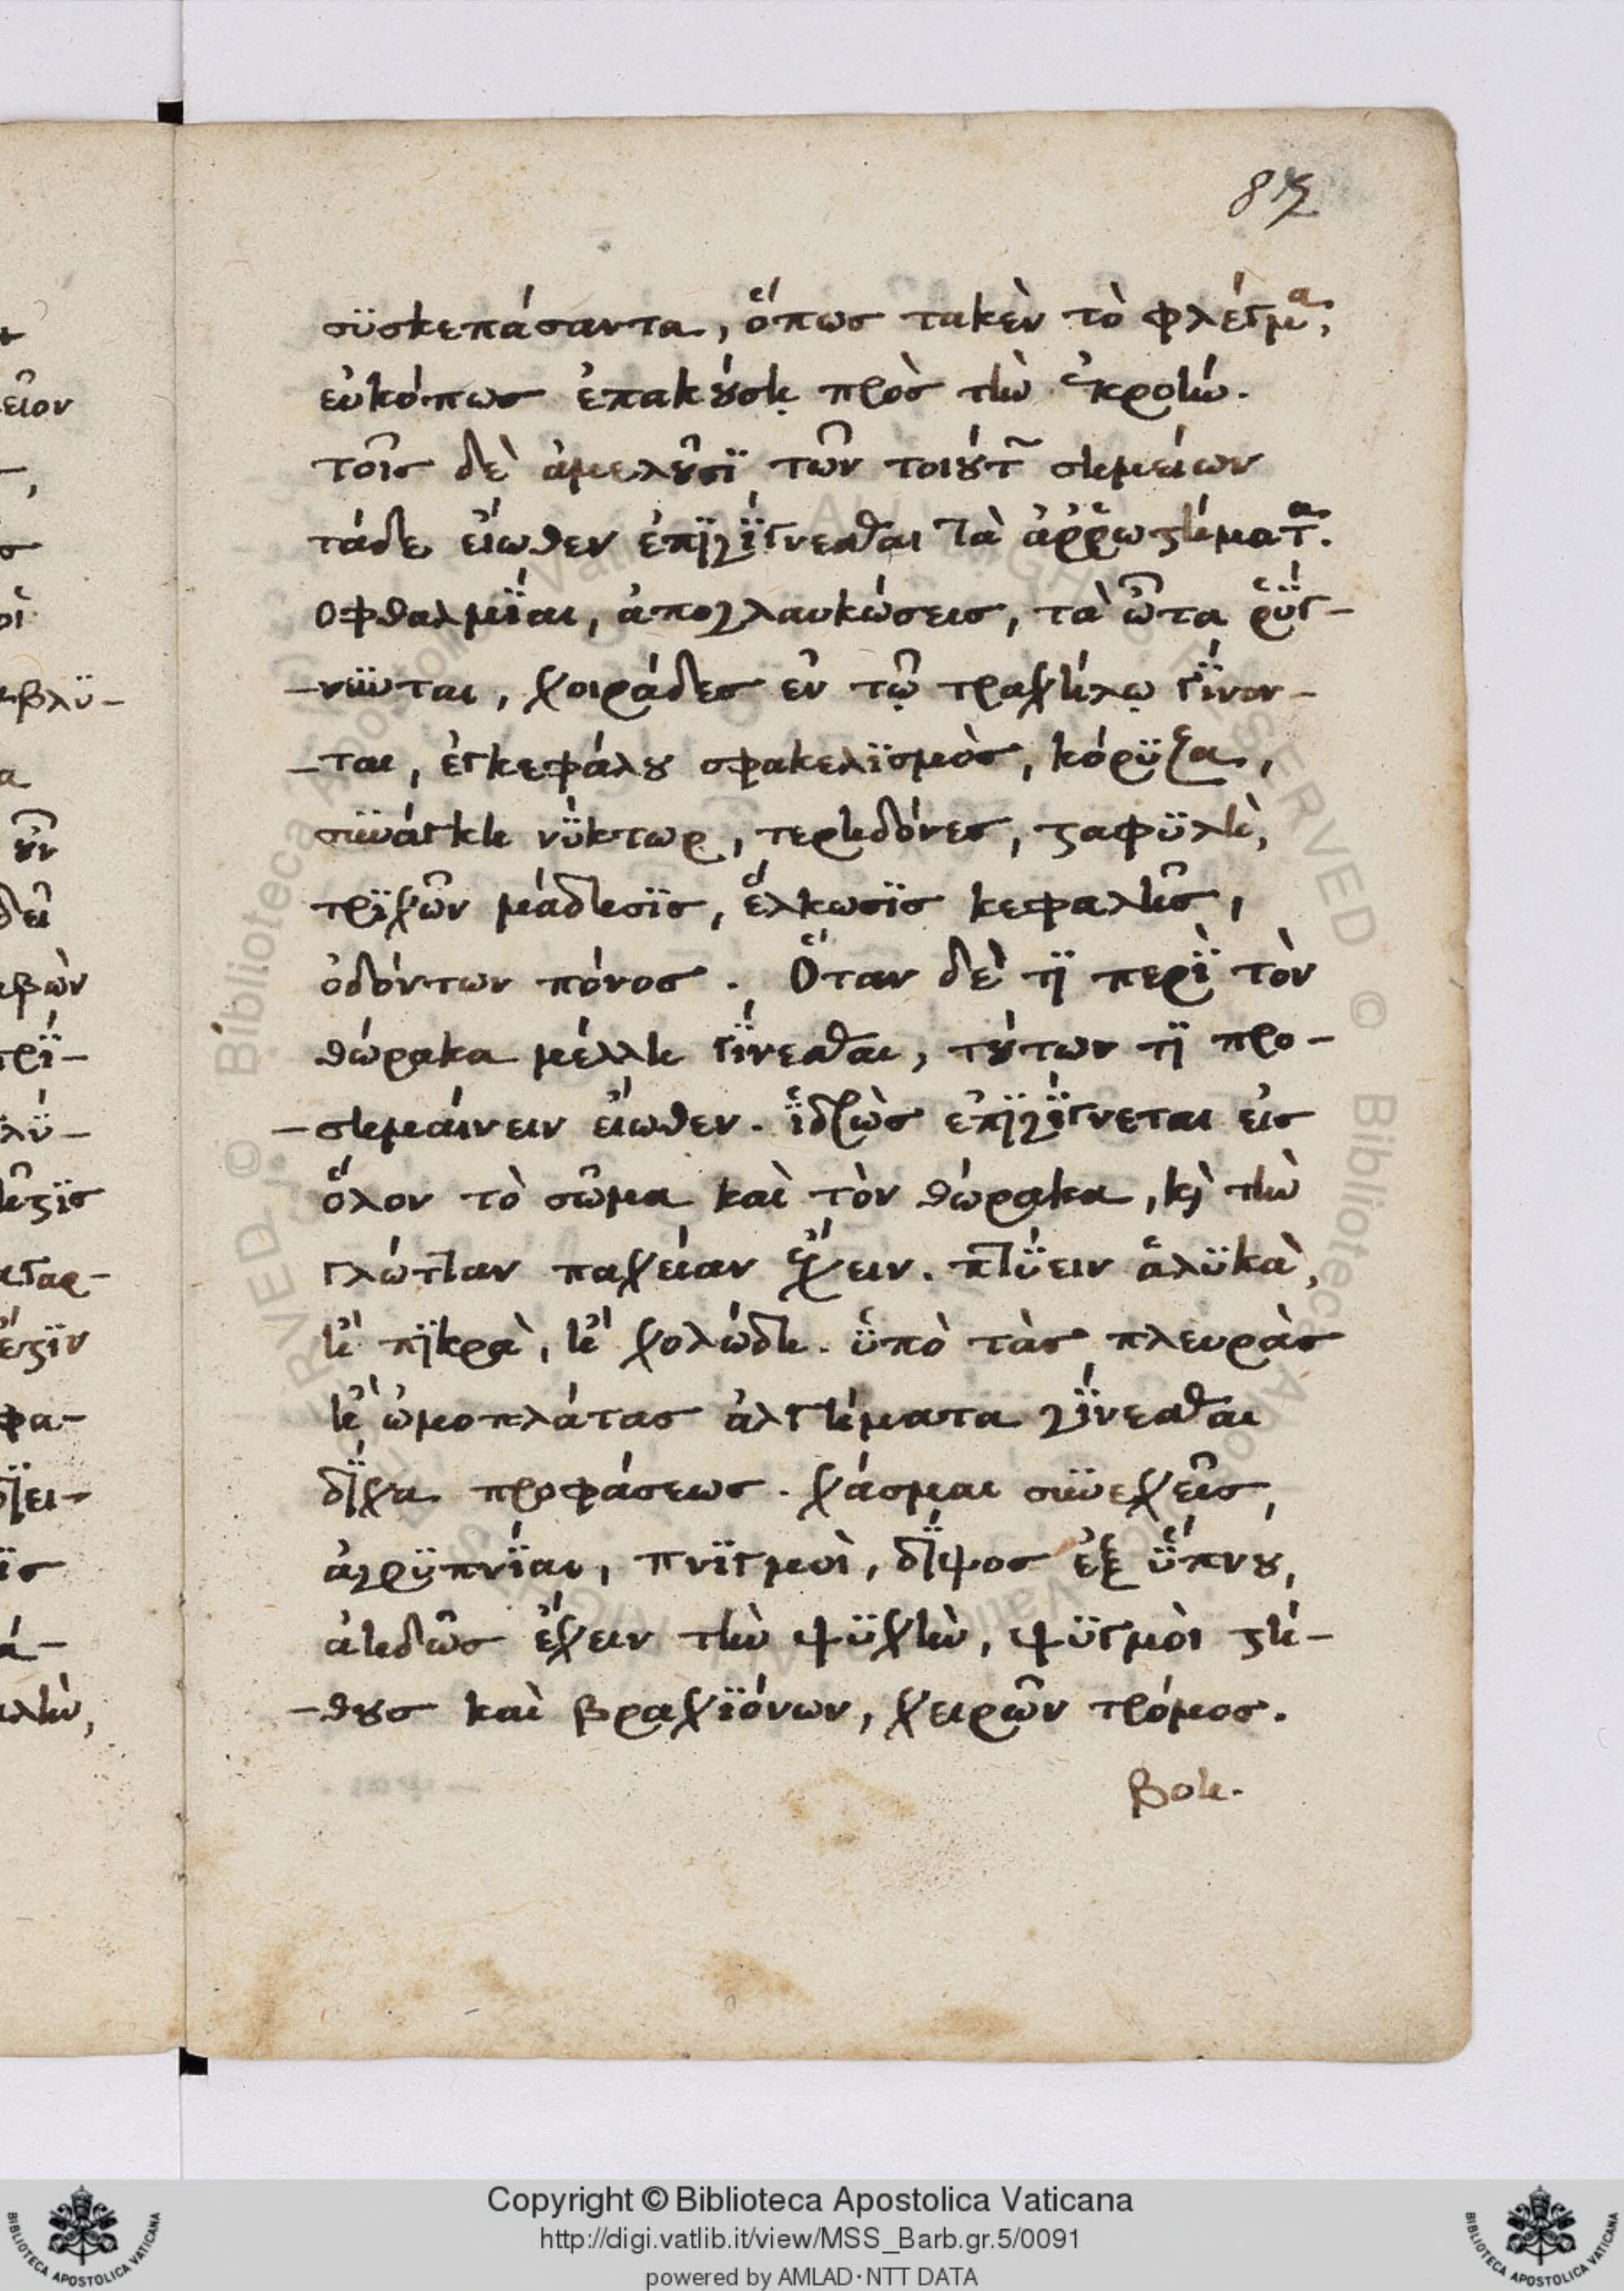 87
συσκεπάσαντα, ὅπως τακὲν τὸ φλέγμα,
εὐκόπως ἐπακούσῃ πρὸς τὴν ἐκροήν.
τοῖς δὲ ἀμελοῦσι τῶν τοιούτ̃ σημείων
τάδε εἴωθεν ἐπιγίγνεσθαι τὰ ἀῤῥωστήματα.
Οφθαλμίαι, ἀπογλαυκώσεις, τὰ ὦτα ῥύγ-
-νυνται, χοιράδες ἐν τῷ τραχήλῳ γίνον-
-ται, ἐγκεφάλου σφακελισμὸς, κόρυζα,
συνάγκη νύκτωρ, τερηδόνες, σταφυλὴ,
τριχῶν μάδησις, ἕλκωσις κεφαλῆς,
ὀδόντων πόνος. Ὅταν δέ τι περὶ τὸν
θώρακα μέλλη γίνεσθαι, τούτων τι προ-
-σημαίνειν εἴωθεν. ἱδρὼς ἐπιγίγνεται εἰς
ὅλον τὸ σῶμα καὶ τὸν θώρακα, κὶ τὴν
γλῶτταν παχείαν ἔχειν. πτύειν ἁλυκὰ,
ἢ πικρὰ, ἢ χολώδη. ὑπὸ τὰς πλευρὰς
ἢ ὠμοπλάτας ἀλγήματα γίνεσθαι
δίχα προφάσεως. χάσμαι συνεχεῖς,
ἀγρυπνίαι, πνιγμοὶ, δίψος ἐξ ὕπνου,
ἀηδῶς ἔχειν τὴν ψυχὴν, ψυγμὸι στή-
-θους καὶ βραχιόνων, χειρῶν τρόμος.
βοη.
Copyright © Biblioteca Apostolica Vaticana
http://digi.vatlib.it/view/MSS_Barb.gr.5/0091
powered by AMLAD·NTT DATA